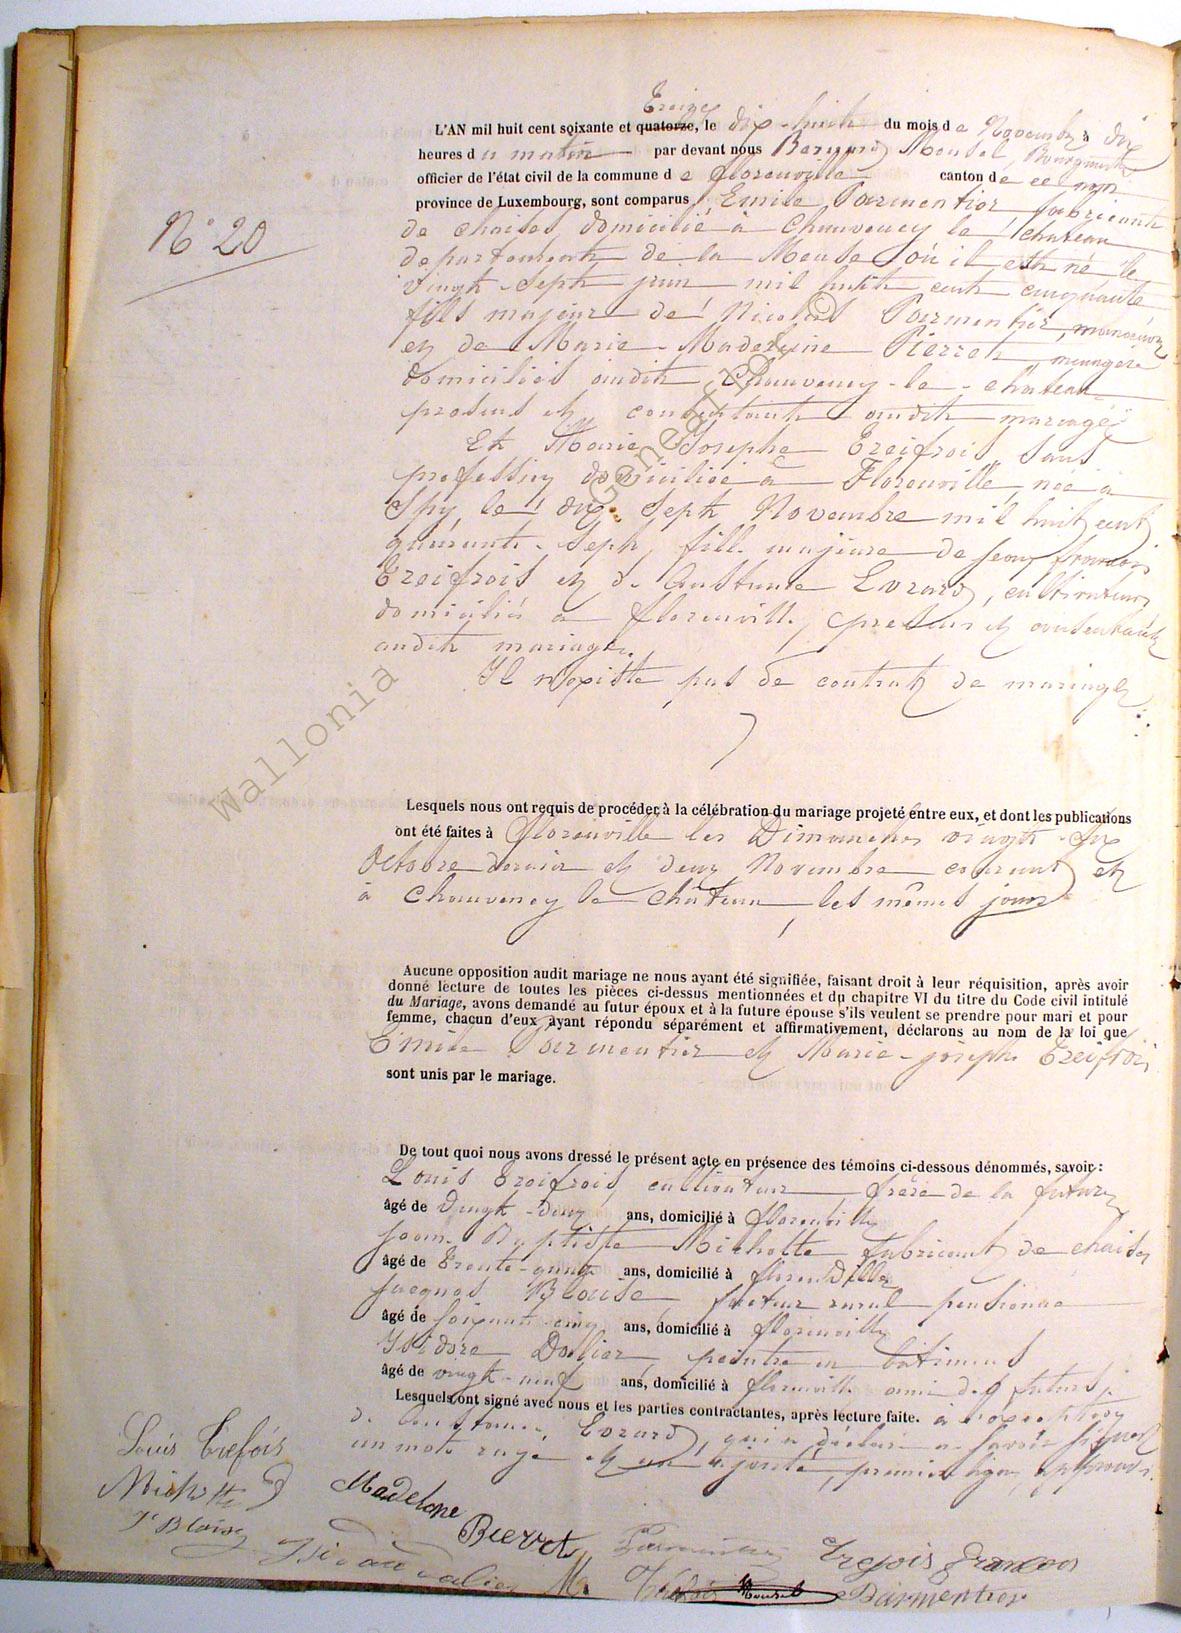 Treize
L'AN mil huit cent soixante et quatorze, le dix-huit du mois de Novembre à dix
heures du matin par devant nous Bernard Mousel, Bourgmestre
officier de l'état civil de la commune de Florenville canton de ce nom
province de Luxembourg, sont comparus Emile Parmentier, fabricant
N° 20
de chaises, domicilié à Chauvency le château
département de la Meuse où il est né le
vingt-sept juin mil huit cent cinquante
fils majeur de Nicolas Parmentier, manoeuvre
et de Marie-Madeleine Pierret, ménagère
domiciliés audit Chauvency-le-château
présens et consentants audit mariage
Et Marie Josephe Treifrois, sans
profession, domiciliée à Florenville, née à
Spy, le dix-sept Novembre mil huit cent
quarante-sept, fille majeure de Jean François
Treifrois et de Constance Evrard, cultivateurs
domiciliés à Florenville, présens et consentants
audit mariage.
Il n'existe pas de contrat de mariage
Lesquels nous ont requis de procéder à la célébration du mariage projeté entre eux, et dont les publications
ont été faites à Florenville les Dimanches vingt-six
Octobre dernier et deux Novembre courant et
à Chauvency le château, les mêmes jours
Aucune opposition audit mariage ne nous ayant été signifiée, faisant droit à leur réquisition, après avoir
donné lecture de toutes les pièces ci-dessus mentionnées et du chapitre VI du titre du Code civil intitulé
du Mariage, avons demandé au futur époux et à la future épouse s'ils veulent se prendre pour mari et pour
femme, chacun d'eux ayant répondu séparément et affirmativement, déclarons au nom de la loi que
Emile Parmentier et Marie-Josephe Treifrois
sont unis par le mariage.
De tout quoi nous avons dressé le présent acte en présence des témoins ci-dessous dénommés, savoir:
Louis Treifrois, cultivateur, frère de la future
âgé de vingt-deux ans, domicilié à Florenville
Jean Baptiste Michotte fabricant de chaises
âgé de trente-quatre ans, domicilié à Florenville
Jacques Blaise, facteur rural pensionné
âgé de soixante-cinq ans, domicilié à Florenville
Isidore Dalier, peintre en bâtiment
âgé de vingt-neuf ans, domicilié à Florenville amis des futurs;
Lesquels ont signé avec nous et les parties contractantes, après lecture faite. à l'exception
de Constance Evrard, qui a déclaré ne savoir signer
un mot rayé et un ajouté, première ligne, approuvés.
Louis Trefois
Michotte
J Blaise
Madelene
Pierret
Isidore Dalier
M Tréfois
Parmentier
Mousel
Trefois François
Parmentier
Wallonia